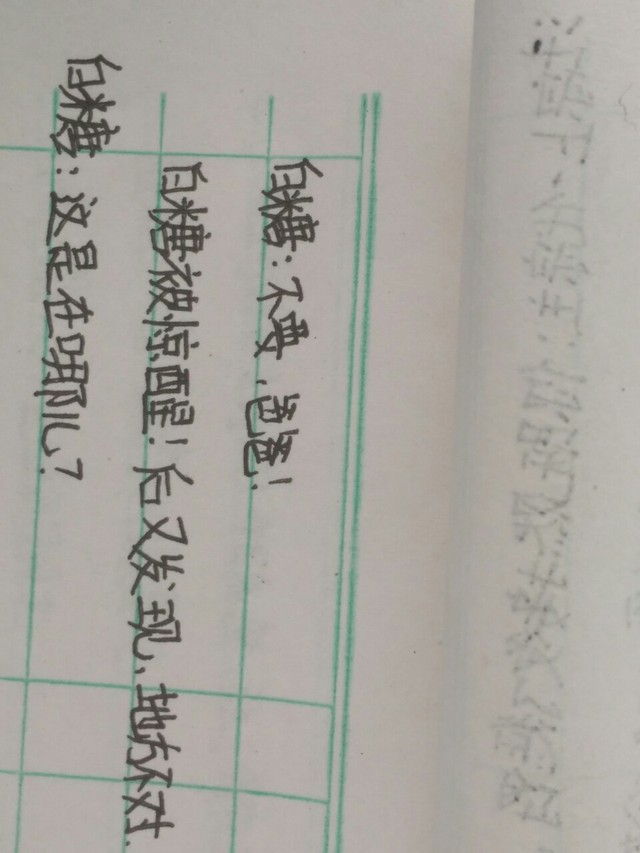 白糖：不要，爸爸！
白糖被惊醒！后又发现，地方不对.
白糖：这是在哪儿？